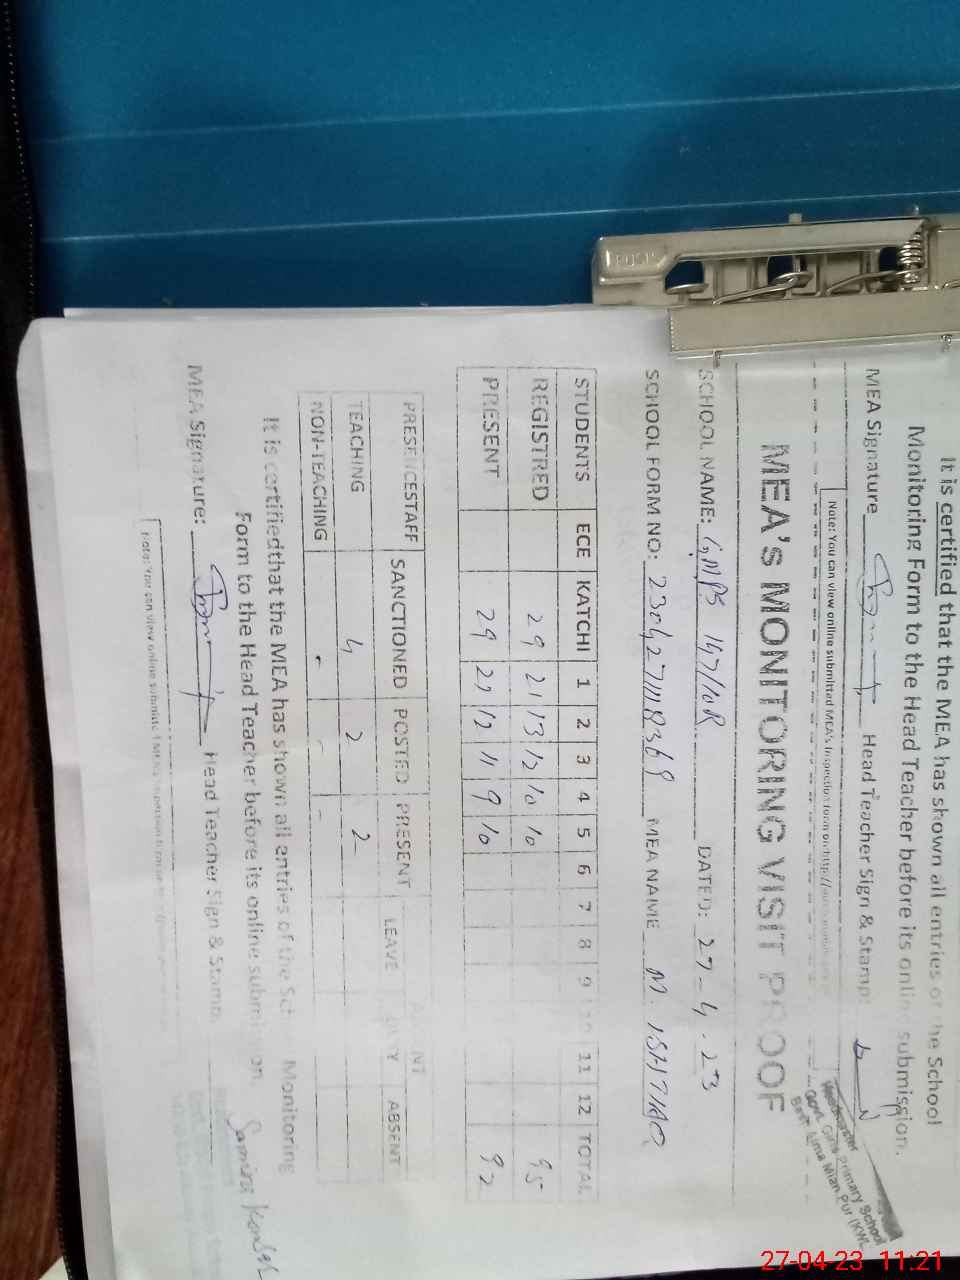 It is certified that the MEA has shown all entries of the School
Monitoring Form to the Head Teacher before its online submission.
MEA Signature Head Teacher Sign & Stamp:
Govt. Girls Primary School
Note: You can view online submitted MEA's Inspection form on http://
MEA's MONITORING VISIT PROOF
SCHOOL NAME: GMPS 147/10R DATED: 27-4-23
SCHOOL FORM NO: MEA NAME M. ISHTIAQ
STUDENTS ECE KATCHI 1 2 3 4 5 6 7 8 9 10 11 12 TOTAL
REGISTRED 29 21 13 12 10 10 95
PRESENT 29 21 12 11 9 10 92
PRESENCESTAFF SANCTIONED POSTED PRESENT LEAVE ABSENT
TEACHING 4 2 2
NON-TEACHING - - -
It is certifiedthat the MEA has shown all entries of the Monitoring
Form to the Head Teacher before its online submission.
MEA Signature: Head Teacher Sign & Stamp.
Note: You can view online
FOCUS
27-04-23 11:21